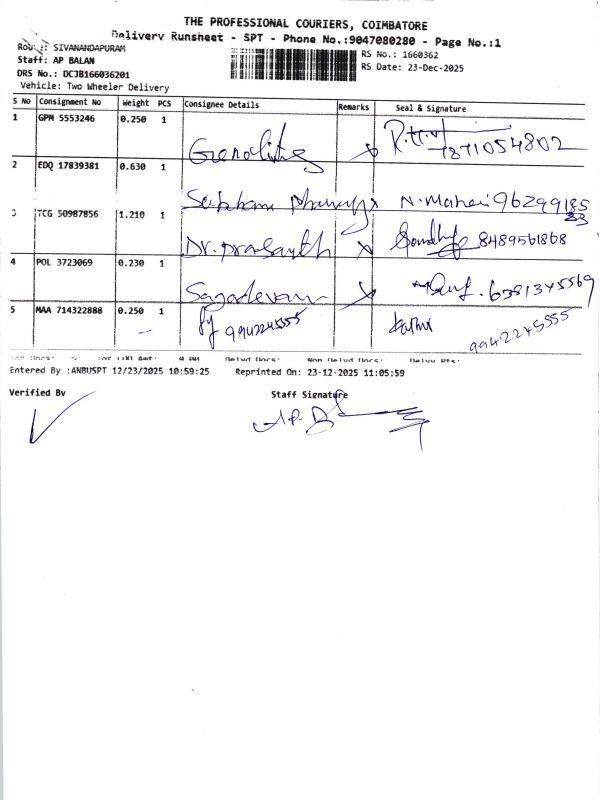 THE PROFESSIONAL COURIERS, COIMBATORE
Delivery Runsheet - SPT - Phone No.:9047080280 - Page No.:1
Route: SIVANANDAPURAM
RS No.: 1660362
Staff: AP BALAN
RS Date: 23-Dec-2025
DRS No.: DCJB166036201
Vehicle: Two Wheeler Delivery
S No Consignment No Weight PCS Consignee Details Remarks Seal & Signature
1 GPM 5553246 0.250 1
7871054802
2 EDQ 17839381 0.630 1
N. Maheri 9629918533
3 TCG 50987856 1.210 1
Dr. prasanth 8489561868
4 POL 3723069 0.230 1
Sagadevan 6381345569
5 MAA 714322888 0.250 1
9942245555
9942245555
Entered By :ANBUSPT 12/23/2025 10:59:25 Reprinted On: 23-12-2025 11:05:59
Verified By Staff Signature
A.P.